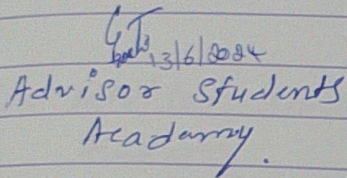 13/6/2024
Advisor Students
Acadamy.